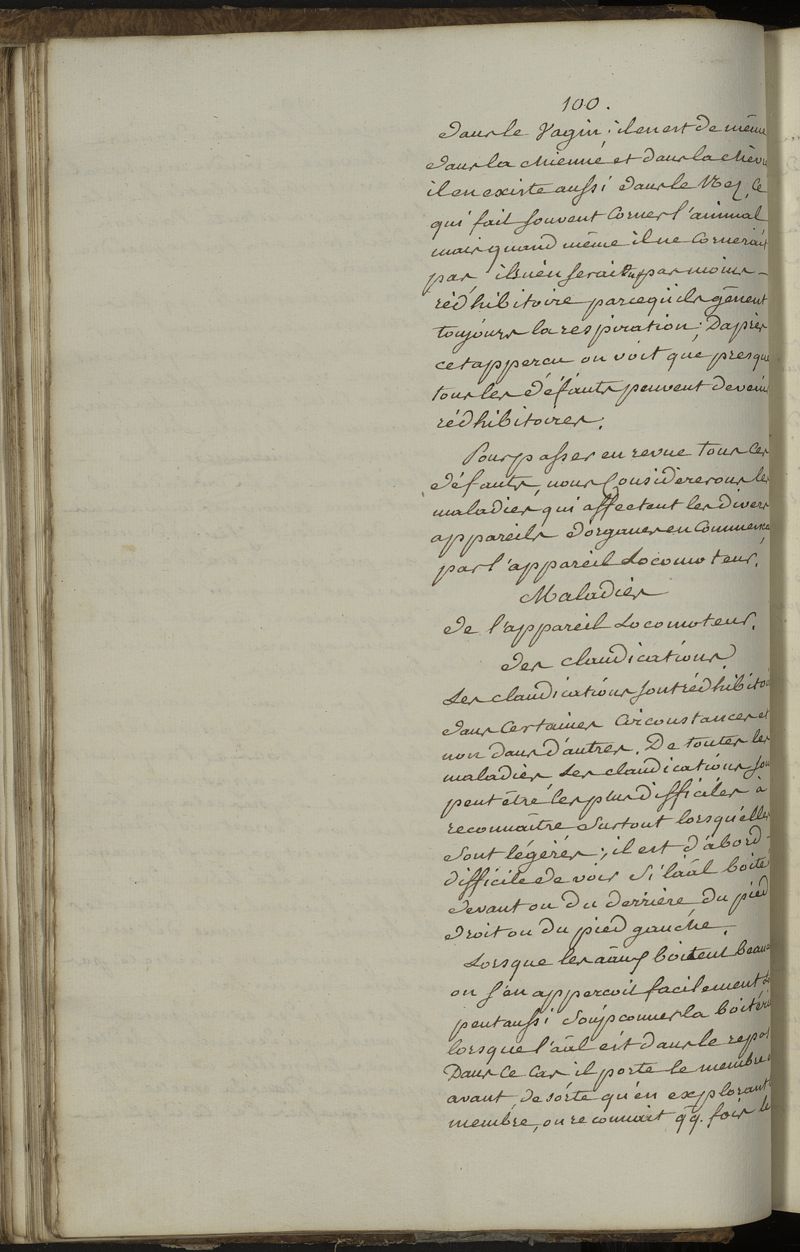 100.
dans le Vagin ; il en est de même
dans la chienne et dans la chèvre
il en existe aussi dans le Nez, Ce
qui fait souvent Corner l'animal
mais quand même il ne Cornerait
pas ils n'en serait pas moins -
rédhibitoire parcequ'ils gênent
toujours la respiration ; D'après
cet appercu on voit que presque
tous les défauts peuvent devenir
rédhibitoires.
Pour passer en revue tous Ces
défauts, nous Considererons les
maladies qui affectent les divers
appareils d'organes en Commenca
par l'appareil Locomoteur.
Maladies
de l'appareil Locomoteur.
des claudications
Les claudications sont rédhibitoi
dans Certaines Circonstances et
non dans d'autres. De toutes les
maladies Les claudications son
peut être les plus difficiles à
reconnaître Surtout lorsqu'elles
Sont légéres ; il est d'abord -
difficile de voir Si l'aâl boite
devant ou du derrière, du pied
droit ou du pied gauche.
Lorsque les aâux boitent beauc
on s'en appercoit facilement
peut aussi Soupconner la boiterie
lorsque l'aâl est dans le repos
Dans Ce Cas il porte le membre
avant, de sorte qu'en explorant
membre, on reconnait qq. fois le